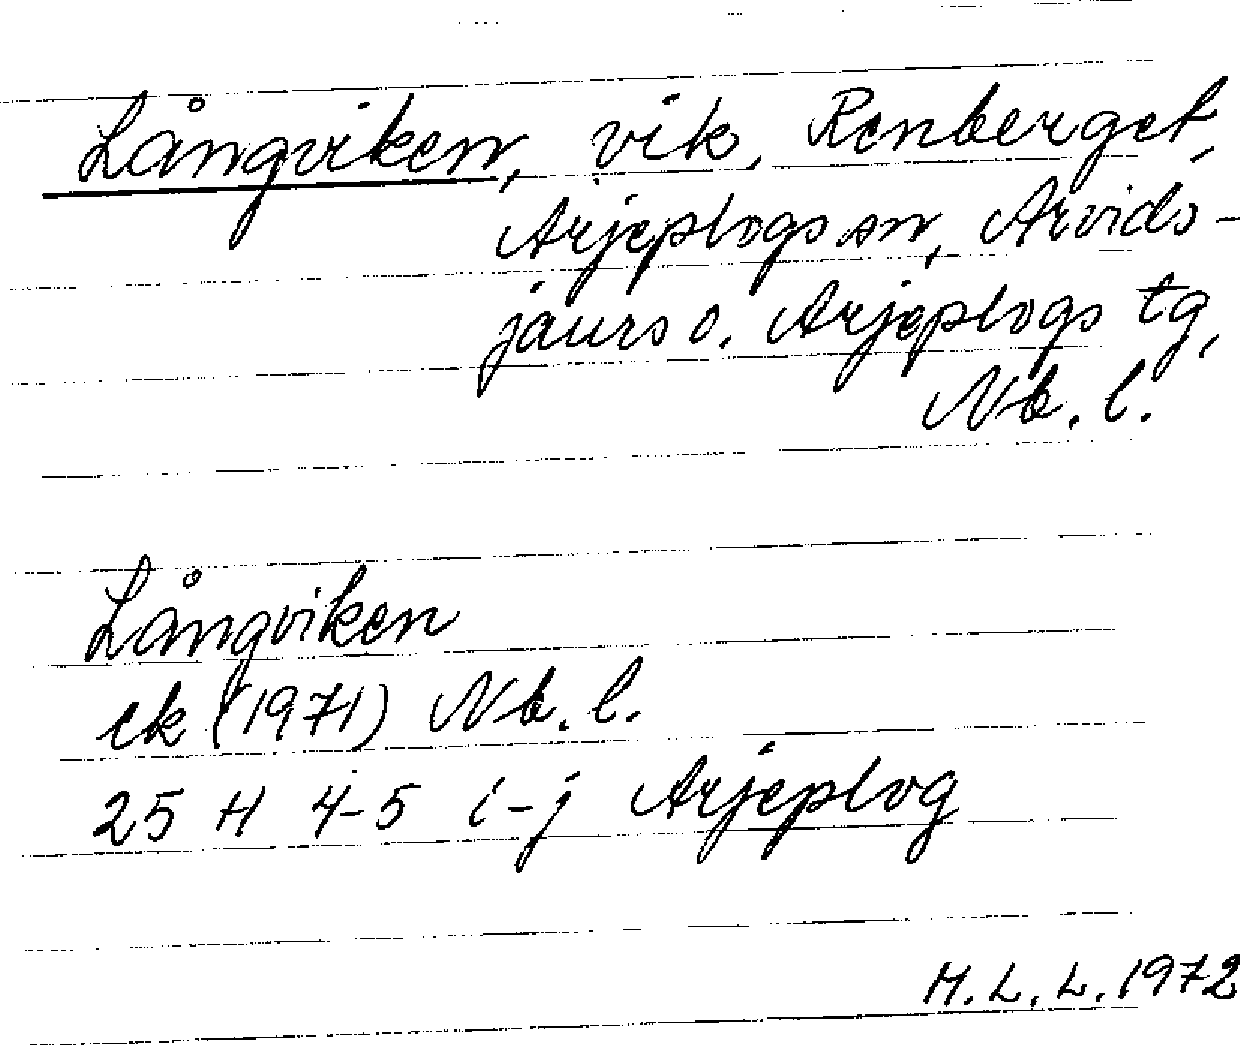 Långviken, vik, Renberget,
Arjeplogs sn, Arvids-
jaurs o. Arjeplogs tg,
Nb. l.
Långviken
ek (1971) Nb. l.
25 H 4-5 i-j Arjeplog
M.L.L. 1972